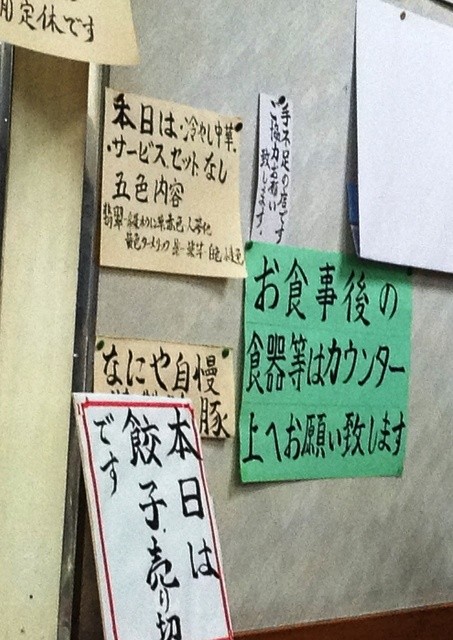 定休です
本日は・冷やし中華・
・サービスセットなし
五色内容
手不足の店です
ご協力お願い
致します。
お食事後の
食器等はカウンター
上へお願い致します
なにや自慢
豚
本日は
餃子売り切
です